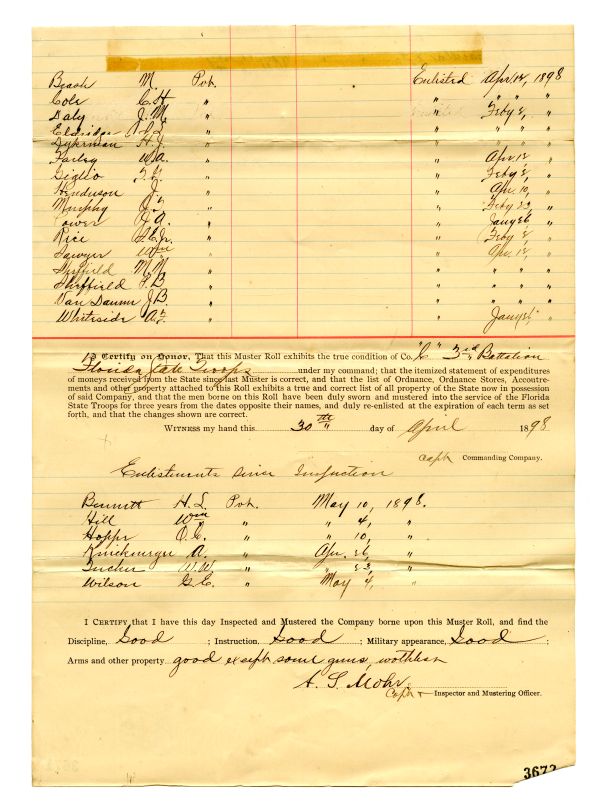 Beach M Pvt. Enlisted Apr 12, 1898
Cole C. H. " " " " "
Daly J. M. " " Feby 8, "
Eldridge " " " " "
Dykerman H. J. " " " " "
Farley W. A. " " Apr. 12 "
Giglio " " Feby 8, "
Henderson J. " " Apr. 10, "
Murphy " " Feby 23 "
Power J. A. " " Jany 26 "
Rice " " Feby 8, "
Sawyer Wm " " Apr. 12, "
Sheffield M. M. " " " " "
Sheffield S. B. " " " " "
Van Daumm J. B. " " " " "
Whiteside A. F. " " Jany 26, "
I Certify on Honor, That this Muster Roll exhibits the true condition of Co. "C" 3rd Battalion
Florida State Troops under my command; that the itemized statement of expenditures
of moneys received from the State since last Muster is correct, and that the list of Ordnance, Ordnance Stores, Accoutre-
ments and other property attached to this Roll exhibits a true and correct list of all property of the State now in possession
of said Company, and that the men borne on this Roll have been duly sworn and mustered into the service of the Florida
State Troops for three years from the dates opposite their names, and duly re-enlisted at the expiration of each term as set
forth, and that the changes shown are correct.
Witness my hand this 30th day of April 1898
Capt Commanding Company.
Enlistments since Inspection
Bennett H. L. Pvt. May 10, 1898.
Hill Wm " " 4, "
Hopps O. C. " " 10, "
A. " Apr. 26, "
Tucker W. W. " " 23, "
Wilson G. E. " May 4, "
I Certify that I have this day Inspected and Mustered the Company borne upon this Muster Roll, and find the
Discipline, Good ; Instruction, Good ; Military appearance, Good ;
Arms and other property good except some guns, wothless
A. S. Mohr.
Capt + Inspector and Mustering Officer.
3672